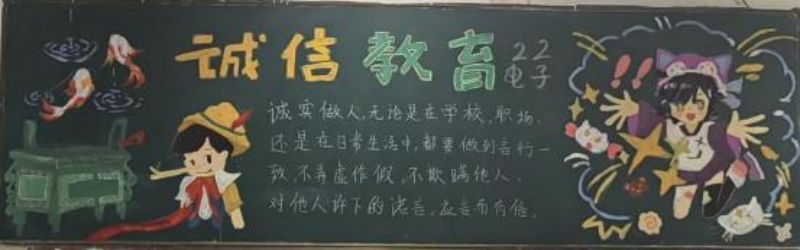 诚信教育
22
电子
诚实做人,无论是在学校,职场,
还是在日常生活中,都要做到言行一
致,不弄虚作假,不欺瞒他人.
对他人许下的诺言,必言而有信.